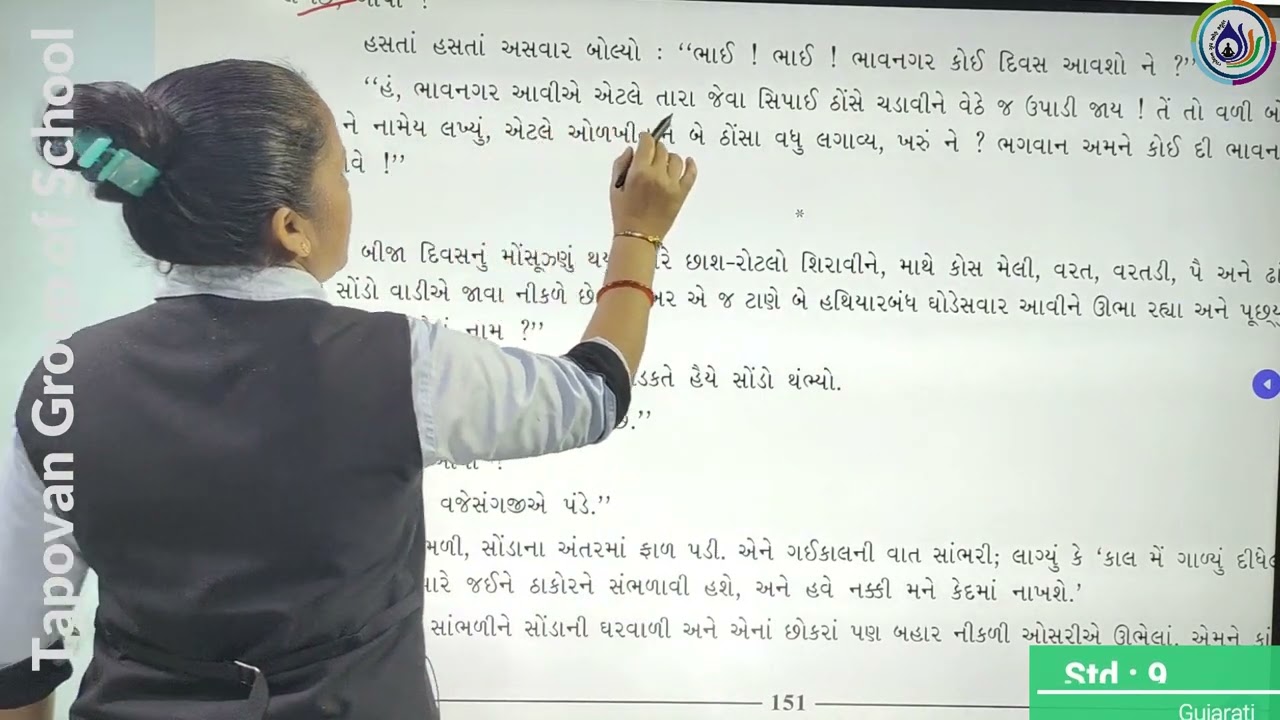 હસતાં હસતાં અસવાર બોલ્યો : “ભાઈ ! ભાઈ ! ભાવનગર કોઈ દિવસ આવશો ને ?”
“હં, ભાવનગર આવીએ એટલે તારા જેવા સિપાઈ ઠોંસે ચડાવીને વેઠે જ ઉપાડી જાય ! તેં તો વળી
ને નામેય લખ્યું, એટલે બે ઠોંસા વધુ લગાવ્ય, ખરું ને ? ભગવાન અમને કોઈ દી
!”
*
બીજા દિવસનું મોંસૂઝણું છાશ-રોટલો શિરાવીને, માથે કોસ મેલી, વરત, વરતડી, પૈ અને
સોંડો વાડીએ જાવા નીકળે છે એ જ ટાણે બે હથિયારબંધ ઘોડેસવાર આવીને ઊભા રહ્યા અને
નામ ?”
હૈયે સોંડો થંભ્યો.
વજેસંગજીએ પંડે.”
સોંડાના અંતરમાં ફાળ પડી. એને ગઈકાલની વાત સાંભરી; લાગ્યું કે ‘કાલ મેં ગાળ્યું
જઈને ઠાકોરને સંભળાવી હશે, અને હવે નક્કી મને કેદમાં નાખશે.’
સાંભળીને સોંડાની ઘરવાળી અને એનાં છોકરાં પણ બહાર નીકળી ઓસરીએ ઊભેલાં. એમને
151
Tapovan Group of School
Std : 9
Gujarati